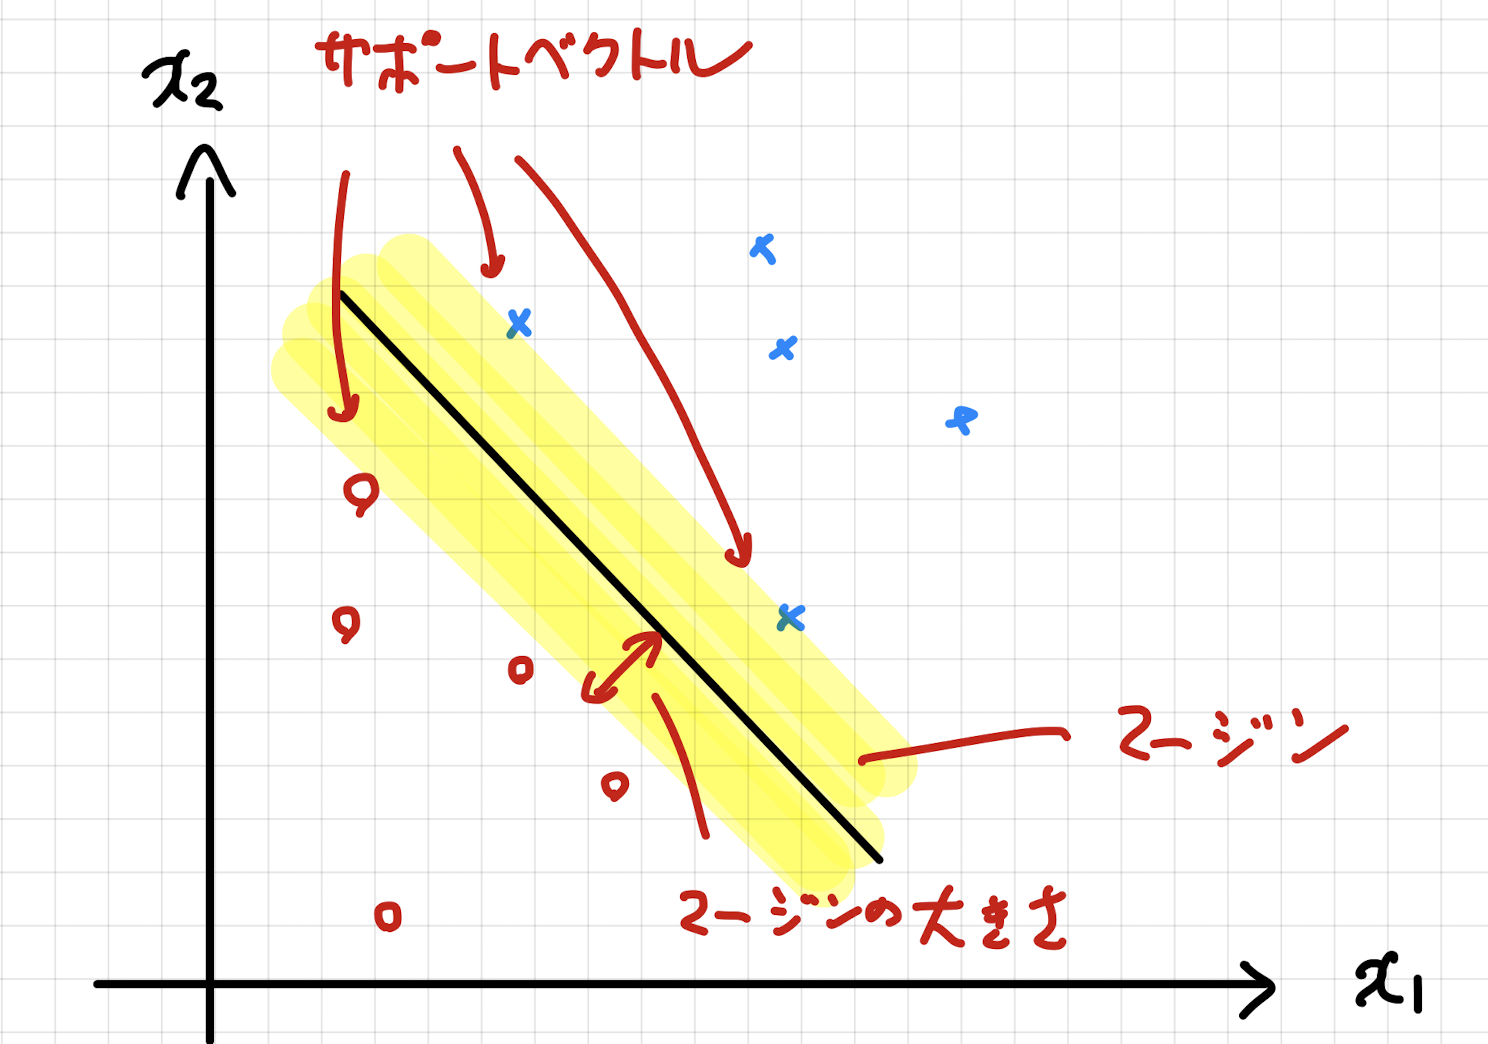 サポートベクトル
x2
マージン
マージンの大きさ
x1